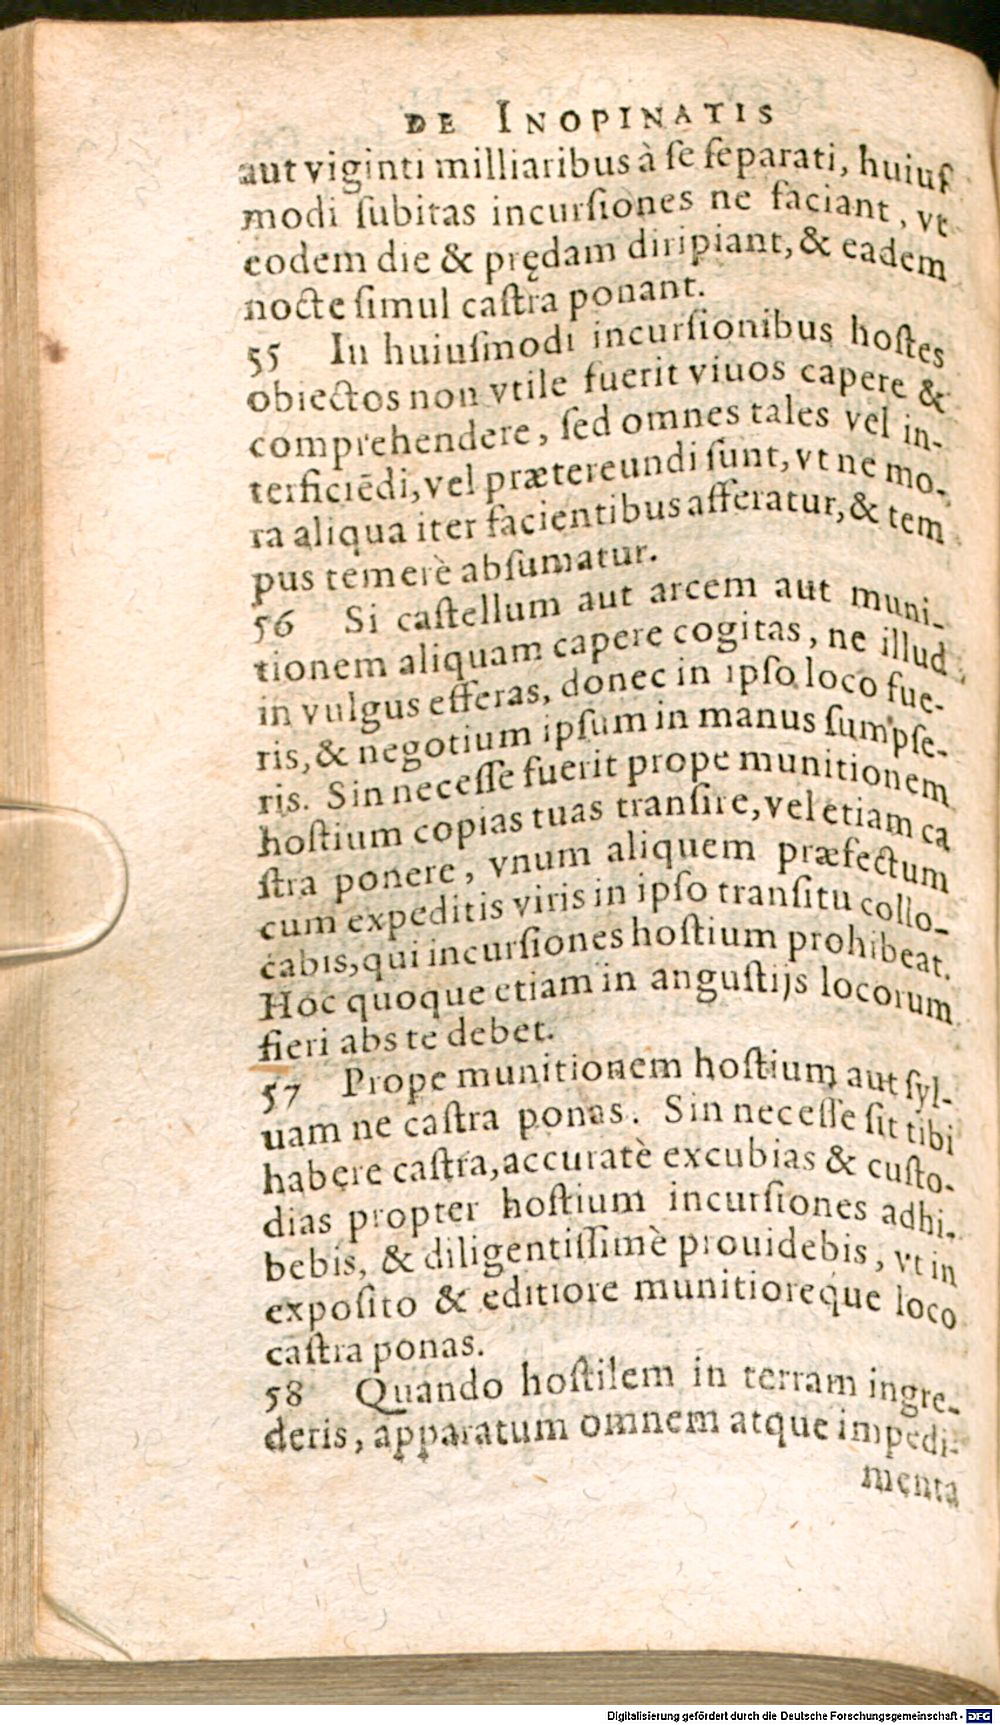 DE INOPINATIS
aut viginti milliaribus à se separati, huius
modi subitas incursiones ne faciant, vt
eodem die & prędam diripiant, & eadem
nocte simul castra ponant.
55 In huiusmodi incursionibus hostes
obiectos non vtile fuerit viuos capere &
comprehendere, sed omnes tales vel in-
terficiēdi, vel prætereundi sunt, vt ne mo-
ra aliqua iter facientibus afferatur, & tem
pus temerè absumatur.
56 Si castellum aut arcem aut muni-
tionem aliquam capere cogitas, ne illud
in vulgus efferas, donec in ipso loco fue-
ris, & negotium ipsum in manus sumpse-
ris. Sin necesse fuerit prope munitionem
hostium copias tuas transire, vel etiam ca
stra ponere, vnum aliquem præfectum
cum expeditis viris in ipso transitu collo-
cabis, qui incursiones hostium prohibeat.
Hoc quoque etiam in angustijs locorum
fieri abs te debet.
57 Prope munitionem hostium aut syl-
uam ne castra ponas. Sin necesse sit tibi
habere castra, accuratè excubias & custo-
dias propter hostium incursiones adhi-
bebis, & diligentissimè prouidebis, vt in
exposito & editiore munitioreque loco
castra ponas.
58 Quando hostilem in terram ingre-
deris, apparatum omnem atque impedi-
menta
Digitalisierung gefördert durch die Deutsche Forschungsgemeinschaft - DFG